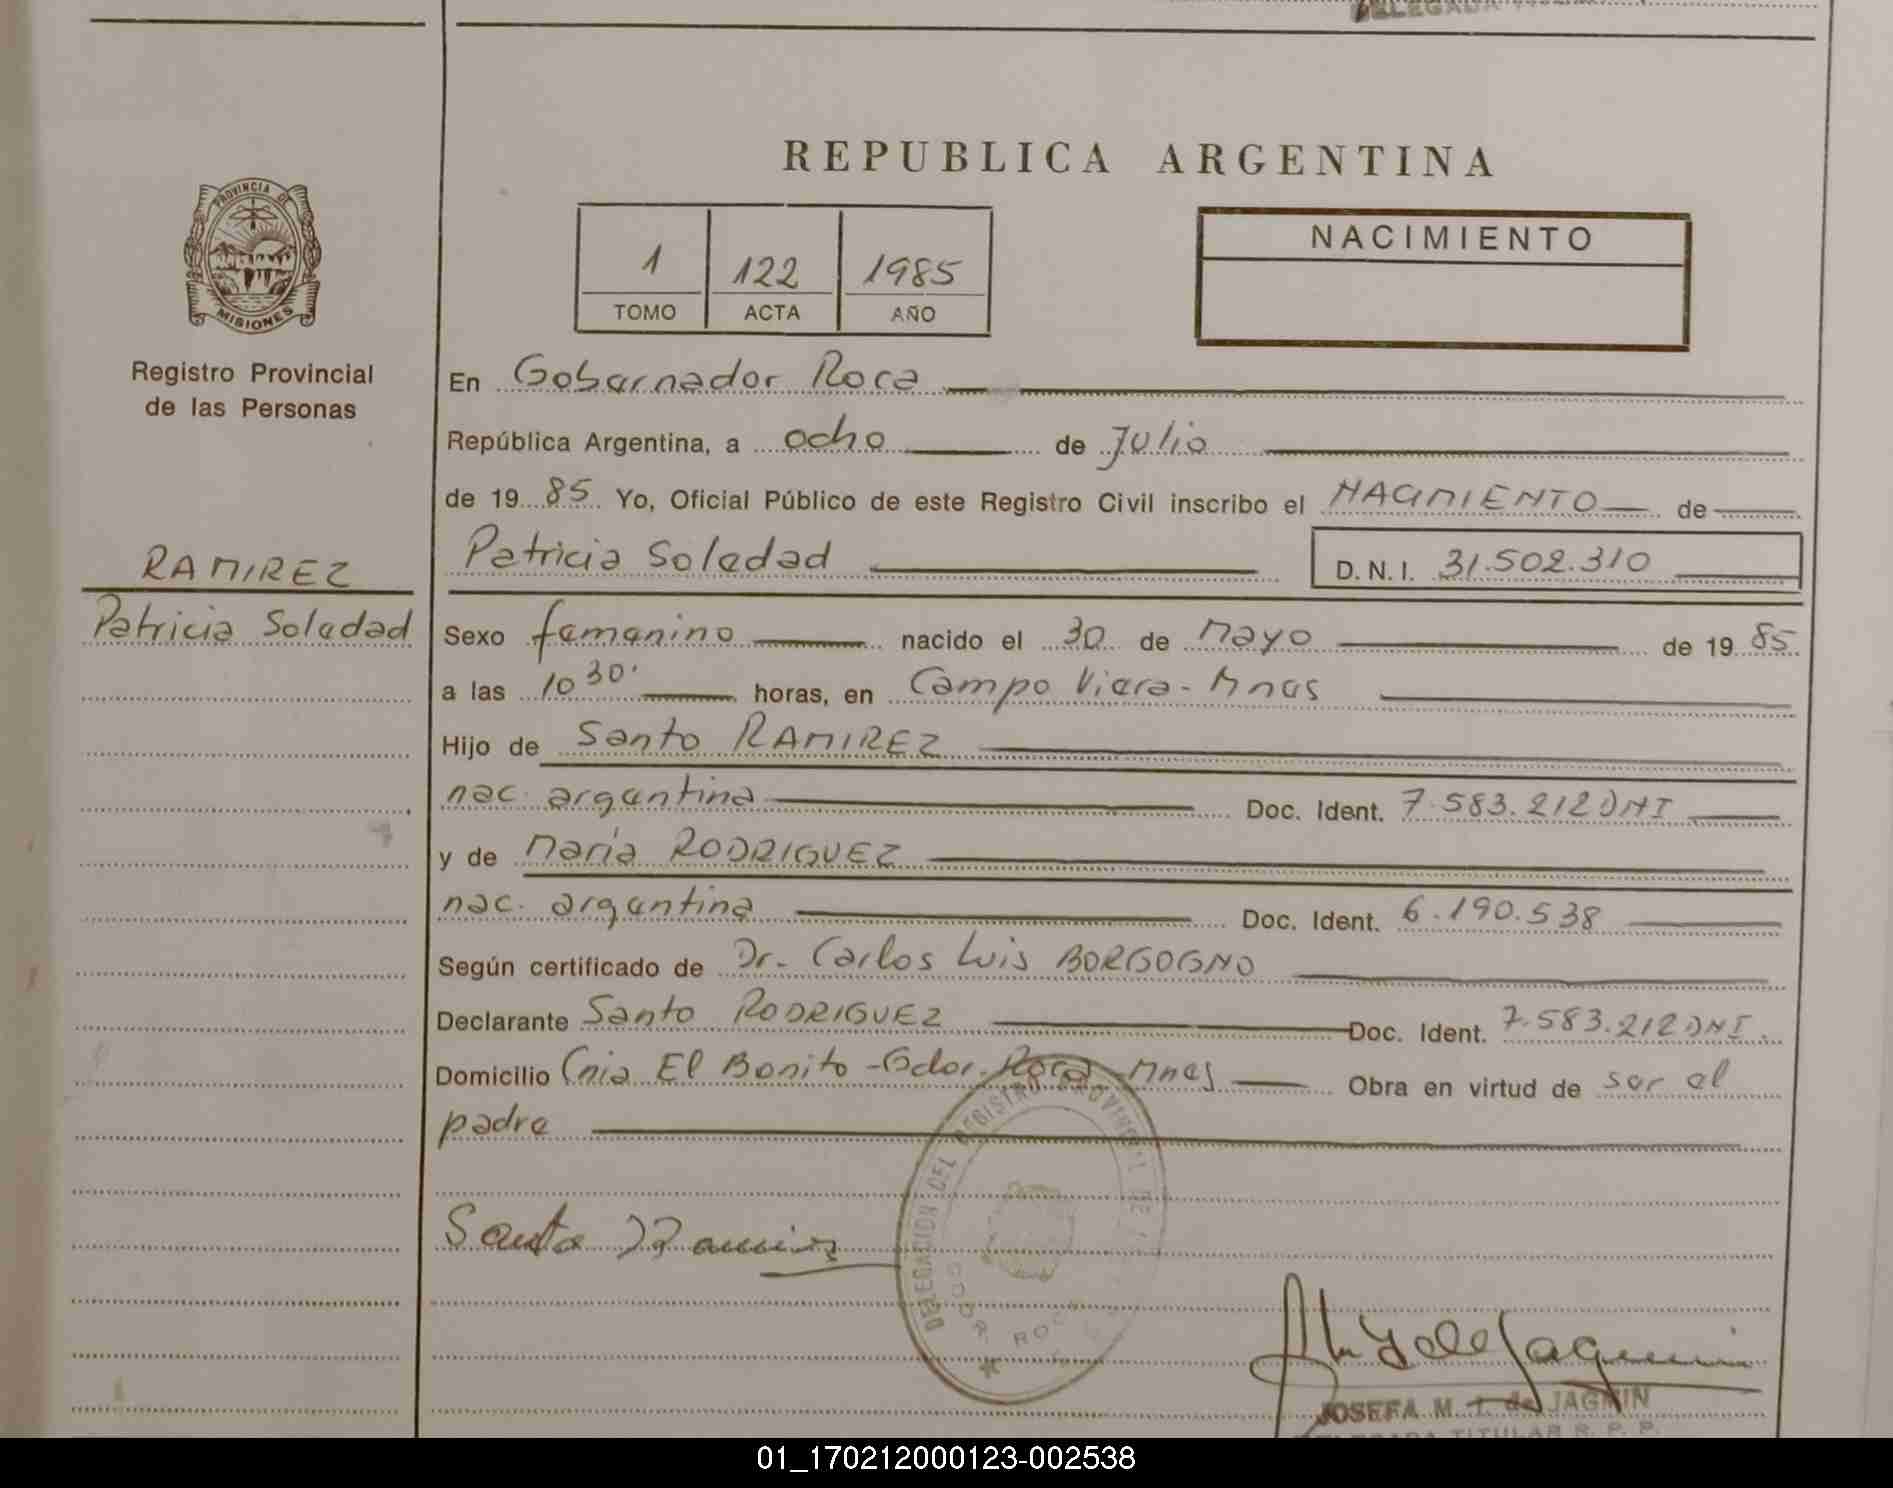 REPUBLICA ARGENTINA
PROVINCIA DE
MISIONES
Registro Provincial
de las Personas
1 122 1985
TOMO ACTA AÑO
NACIMIENTO
En Gobernador Roca
República Argentina, a ocho de Julio
de 19 85 Yo, Oficial Público de este Registro Civil inscribo el NACIMIENTO de
RAMIREZ
Patricia Soledad
Patricia Soledad D.N.I. 31.502.310
Sexo femenino nacido el 30 de Mayo de 19 85
a las 10 30 horas, en Campo Viera - Mnes
Hijo de Santo RAMIREZ
nac. argentina Doc. Ident. 7.583.212 DNI
y de María RODRIGUEZ
nac. argentina Doc. Ident. 6.190.538
Según certificado de Dr. Carlos Luis BORGOGNO
Declarante Santo RODRIGUEZ Doc. Ident. 7.583.212 DNI.
Domicilio Cnia El Bonito - Gdor. Roca - Mnes Obra en virtud de ser el
padre
Santo Ramirez
DELEGACION DEL REGISTRO PROVINCIAL DE
GDOR. ROCA
JOSEFA M. de JAGMIN
DELEGADA TITULAR R. P. P.
01_170212000123-002538